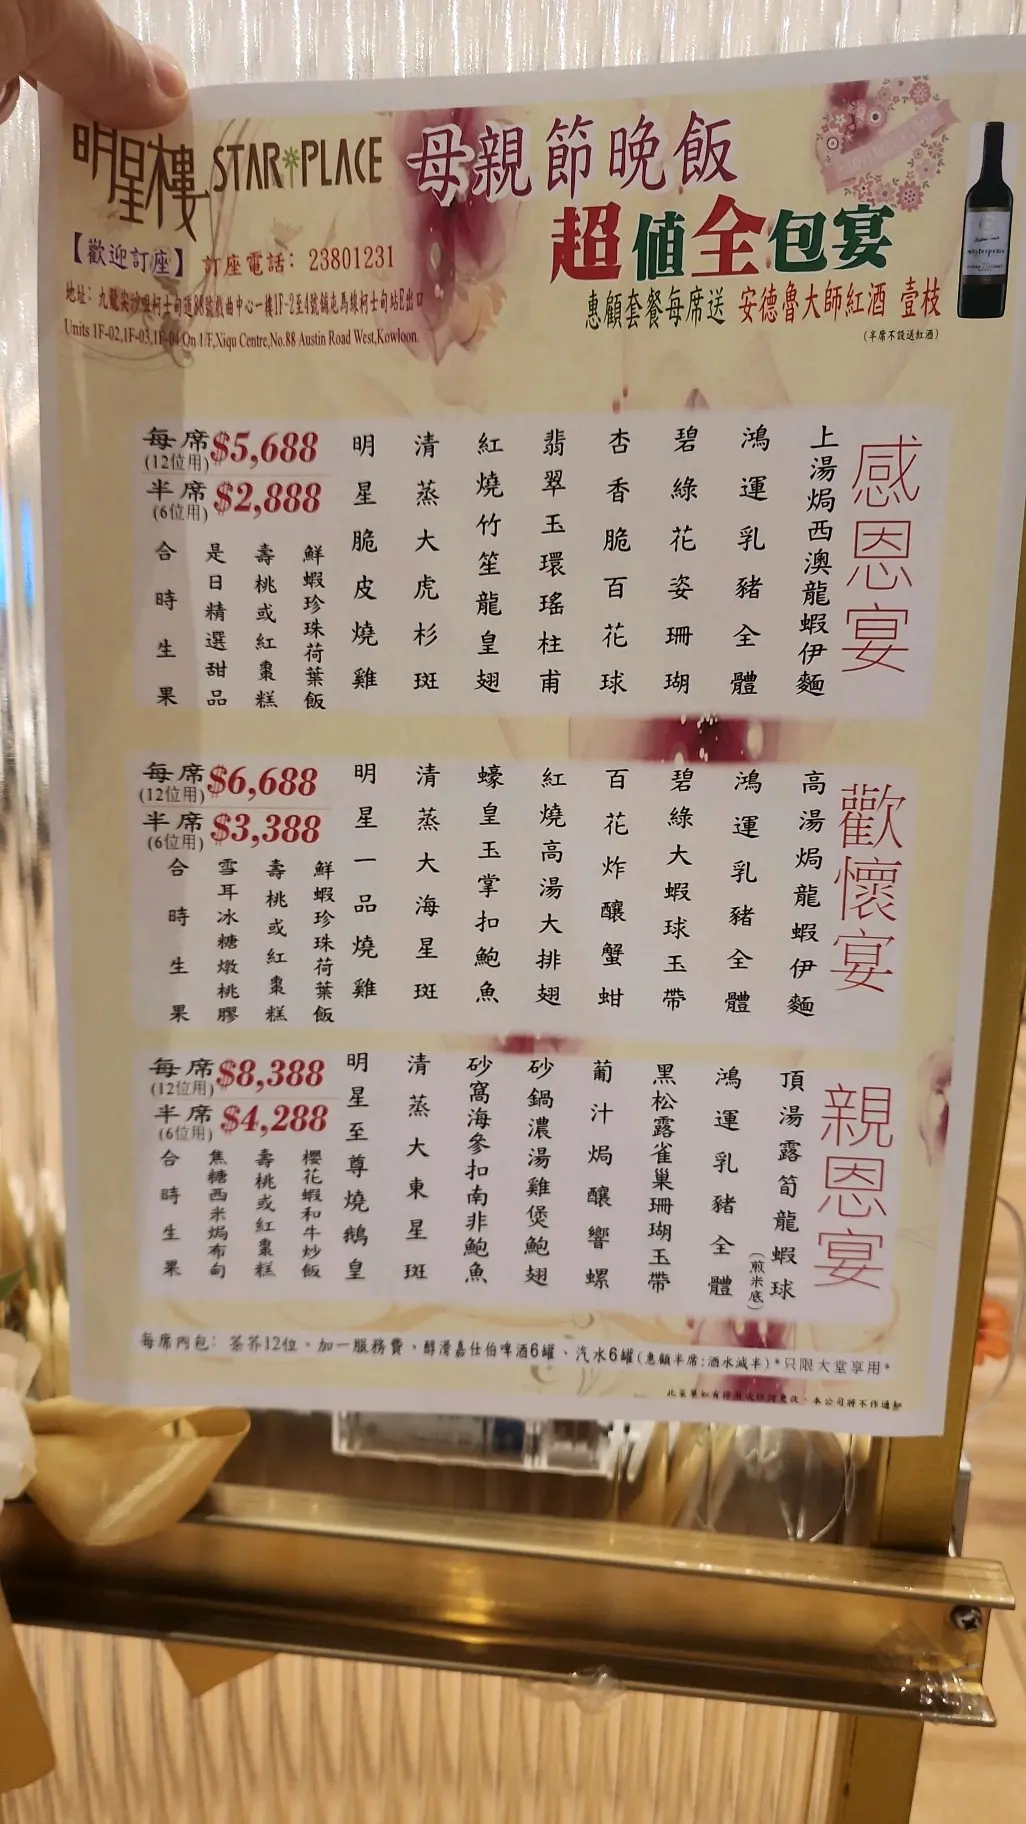 明星樓 STAR PLACE
母親節晚飯
超值全包宴
【歡迎訂座】 訂座電話：23801231
地址：九龍尖沙咀柯士甸道西88號戲曲中心一樓1F-2至4號舖屯馬線柯士甸站E出口
Units 1F-02,1F-03,1F-04 On 1/F,Xiqu Centre,No.88 Austin Road West,Kowloon.
惠顧套餐每席送 安德魯大師紅酒 壹枝
(半席不設送紅酒)
感恩宴
上湯焗西澳龍蝦伊麵
鴻運乳豬全體
碧綠花姿珊瑚
杏香脆百花球
翡翠玉環瑤柱甫
紅燒竹笙龍皇翅
清蒸大虎杉斑
明星脆皮燒雞
每席 $5,688
(12位用)
半席 $2,888
(6位用)
鮮蝦珍珠荷葉飯
壽桃或紅棗糕
是日精選甜品
合時生果
歡懷宴
高湯焗龍蝦伊麵
鴻運乳豬全體
碧綠大蝦球玉帶
百花炸釀蟹蚶
紅燒高湯大排翅
蠔皇玉掌扣鮑魚
清蒸大海星斑
明星一品燒雞
每席 $6,688
(12位用)
半席 $3,388
(6位用)
鮮蝦珍珠荷葉飯
壽桃或紅棗糕
雪耳冰糖燉桃膠
合時生果
親恩宴
頂湯露筍龍蝦球
(煎米底)
鴻運乳豬全體
黑松露雀巢珊瑚玉帶
葡汁焗釀響螺
砂鍋濃湯雞煲鮑翅
砂窩海參扣南非鮑魚
清蒸大東星斑
明星至尊燒鵝皇
每席 $8,388
(12位用)
半席 $4,288
(6位用)
櫻花蝦和牛炒飯
壽桃或紅棗糕
焦糖西米焗布甸
合時生果
每席內包：茶芥12位，加一服務費，醇滑嘉仕伯啤酒6罐、汽水6罐(惠顧半席:酒水減半)*只限大堂享用*
本公司將不作通知